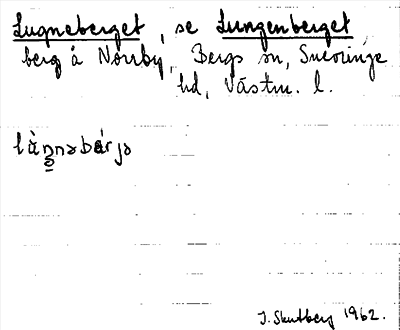 Lugneberget, se Lungenberget
berg å Norrby, Bergs sn, Snevringe
hd, Västm. l.
J. Skutberg 1962.